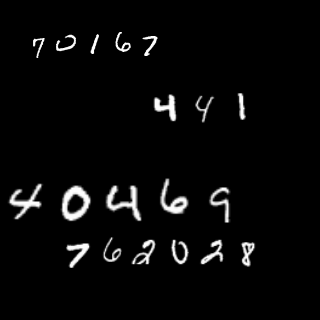 70167
441
40469
762028